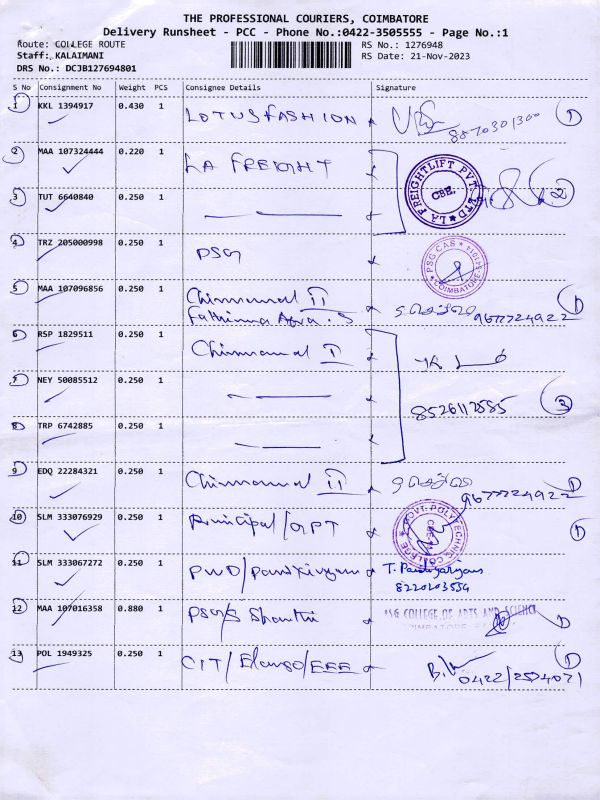 THE PROFESSIONAL COURIERS, COIMBATORE
Delivery Runsheet - PCC - Phone No.:0422-3505555 - Page No.:1
Route: COLLEGE ROUTE RS No.: 1276948
Staff: KALAIMANI RS Date: 21-Nov-2023
DRS No.: DCJB127694801
S No Consignment No Weight PCS Consignee Details Signature
1 KKL 1394917 0.430 1 LOTUS FASHION 8870301300 1
2 MAA 107324444 0.220 1 LA FREIGHT LA FREIGHTLIFT PVT. LTD CBE. 2
3 TUT 6640840 0.250 1
4 TRZ 205000998 0.250 1 PSG PSG CAS COIMBATORE
5 MAA 107096856 0.250 1 Chinmanal II
Fathima Afra.S 9677724922 1
6 RSP 1829511 0.250 1 Chinmanal I
7 NEY 50085512 0.250 1 8526112885 3
8 TRP 6742885 0.250 1
9 EDQ 22284321 0.250 1 Chinmanal II 9677724922 1
10 SLM 333076929 0.250 1 Principal/GPT GOVT. POLYTECHNIC COLLEGE 1
11 SLM 333067272 0.250 1 PWD/ T.
8220203554
12 MAA 107016358 0.880 1 Shanthi PSG COLLEGE OF ARTS AND SCIENCE 1
COIMBATORE
13 POL 1949325 0.250 1 CIT/Elango/EEE 1
0422/2574071